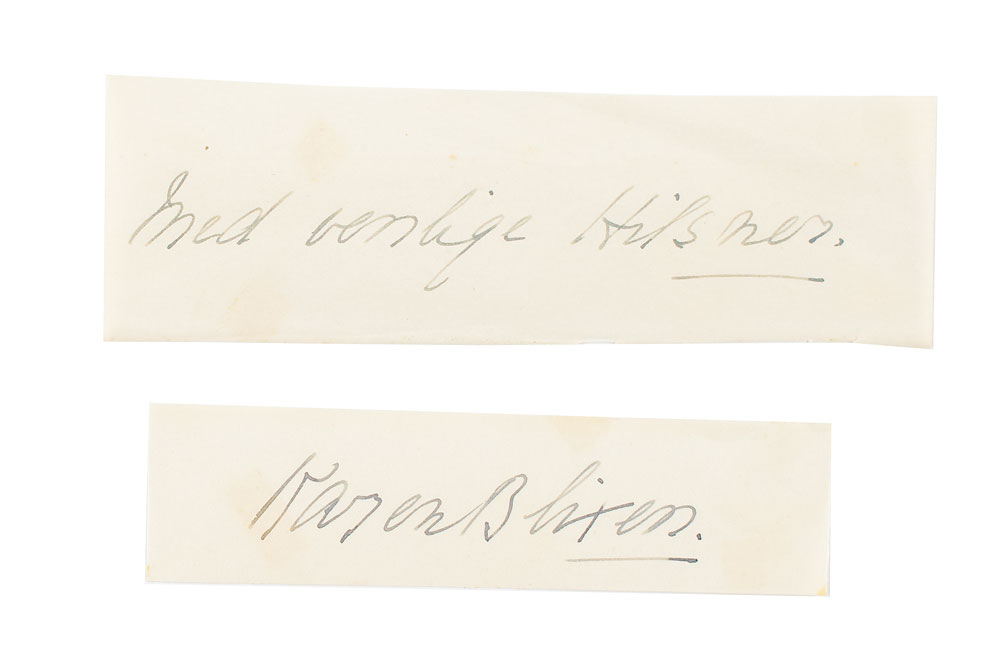 Med venlige Hilsner.
Karen Blixen.